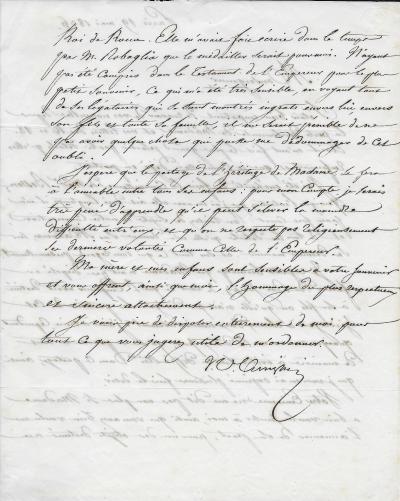 Roi de Rome. Elle m'avait fait écrire dans le temps
par M. Robaglia que le médailler serait pour moi. N'ayant
pas été compris dans le testament de l'Empereur pour le plus
petit souvenir, ce qui m'a été très sensible, en voyant tant
de ses légataires qui se sont montrés ingrats envers lui envers
son fils et toute sa famille, il me serait pénible de ne
pas avoir quelque chose qui puisse me dédommager de cet
oubli.
J'espère que le partage de l'héritage de Madame se fera
à l'amiable entre tous ses enfans: pour mon compte je serais
très peiné d'apprendre qu'il peut s'élever la moindre
difficulté entr'eux, et qu'on ne respecte pas religieusement
ses dernières volontés comme celle de l'Empereur.
Ma mère et mes enfans sont sensibles à votre souvenir
et vous offrent, ainsi que moi, l'hommage du plus respectueux
et sincère attachement.
Je vous prie de disposer entièrement de moi pour
tout ce que vous jugerez utile de m'ordonner.